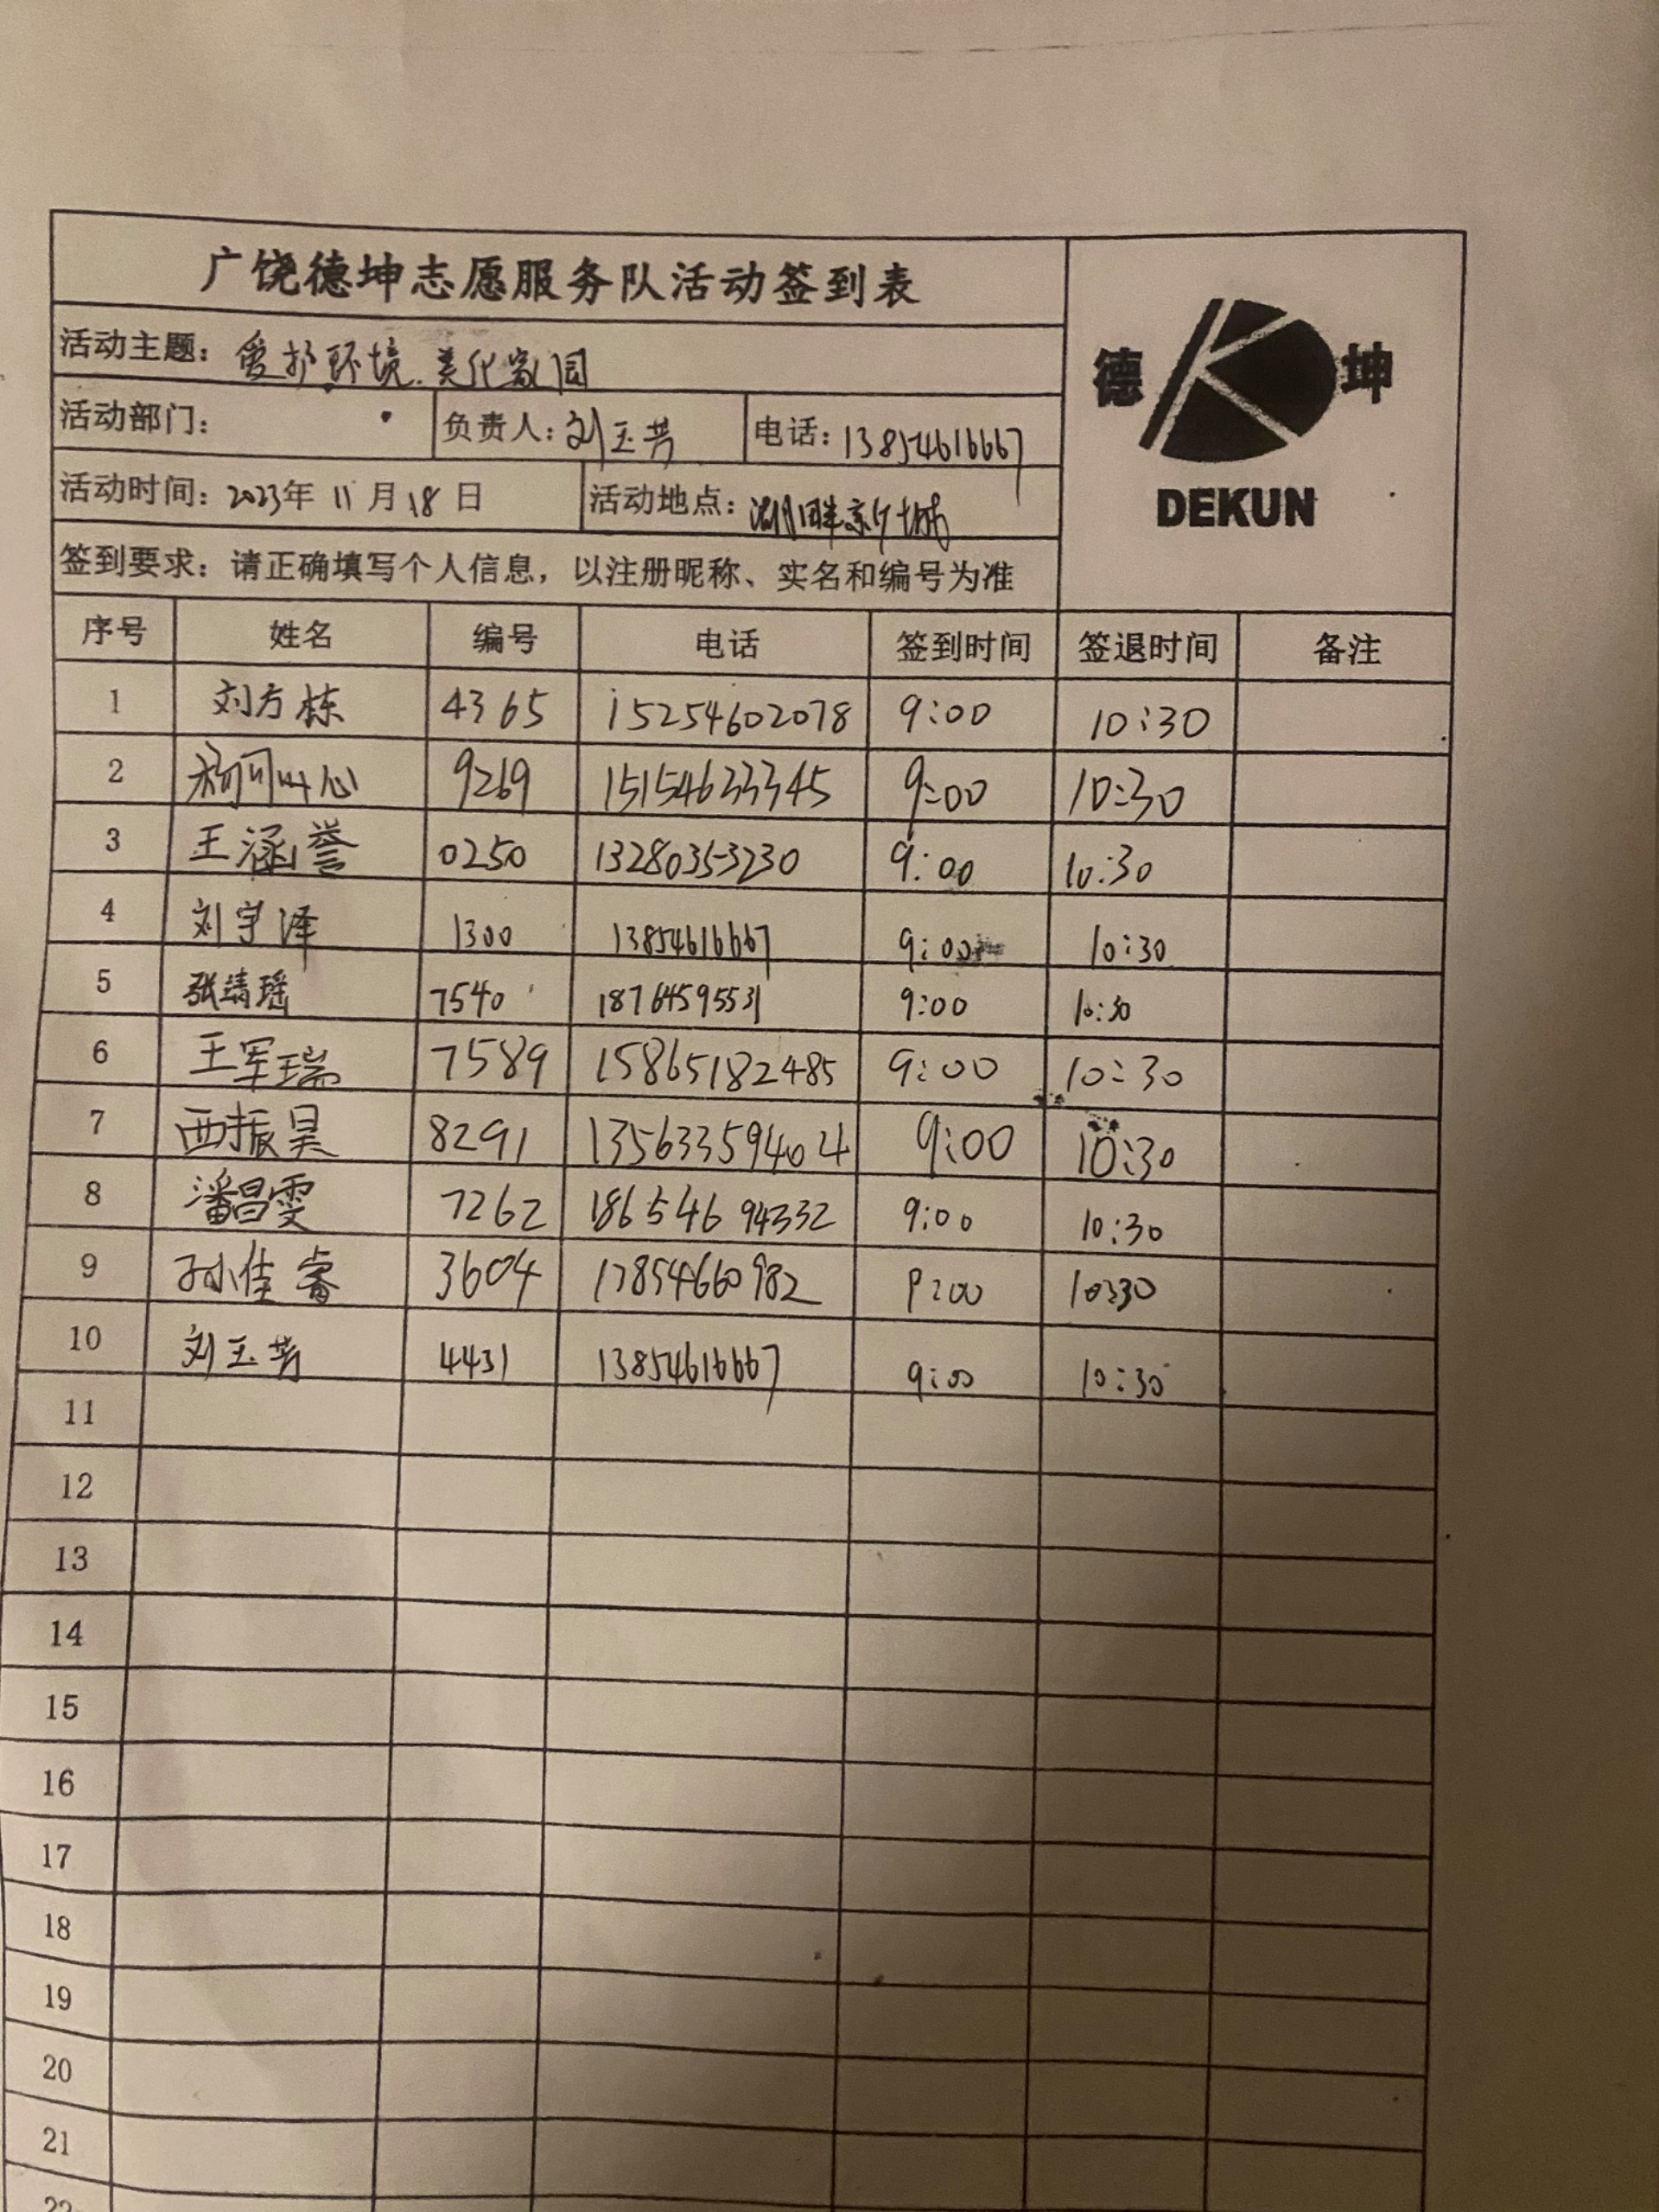 广饶德坤志愿服务队活动签到表
德 坤
DEKUN
活动主题：爱护环境.美化家园
活动部门： 负责人：刘玉芳 电话：13854616667
活动时间：2023年11月18日 活动地点：湖畔京城
签到要求：请正确填写个人信息，以注册昵称、实名和编号为准
序号 姓名 编号 电话 签到时间 签退时间 备注
1 刘方栋 4365 15254602078 9:00 10:30
2 9269 15154633345 9:00 10:30
3 王涵誉 0250 13280353230 9:00 10:30
4 刘宇泽 1300 13854616667 9:00 10:30
5 张靖瑶 7540 18764595531 9:00 10:30
6 王军瑞 7589 15865182485 9:00 10:30
7 西振昊 8291 13563359404 9:00 10:30
8 潘昌雯 7262 18654694332 9:00 10:30
9 孙佳睿 3604 13854660982 9:00 10:30
10 刘玉芳 4431 13854616667 9:00 10:30
11
12
13
14
15
16
17
18
19
20
21
22